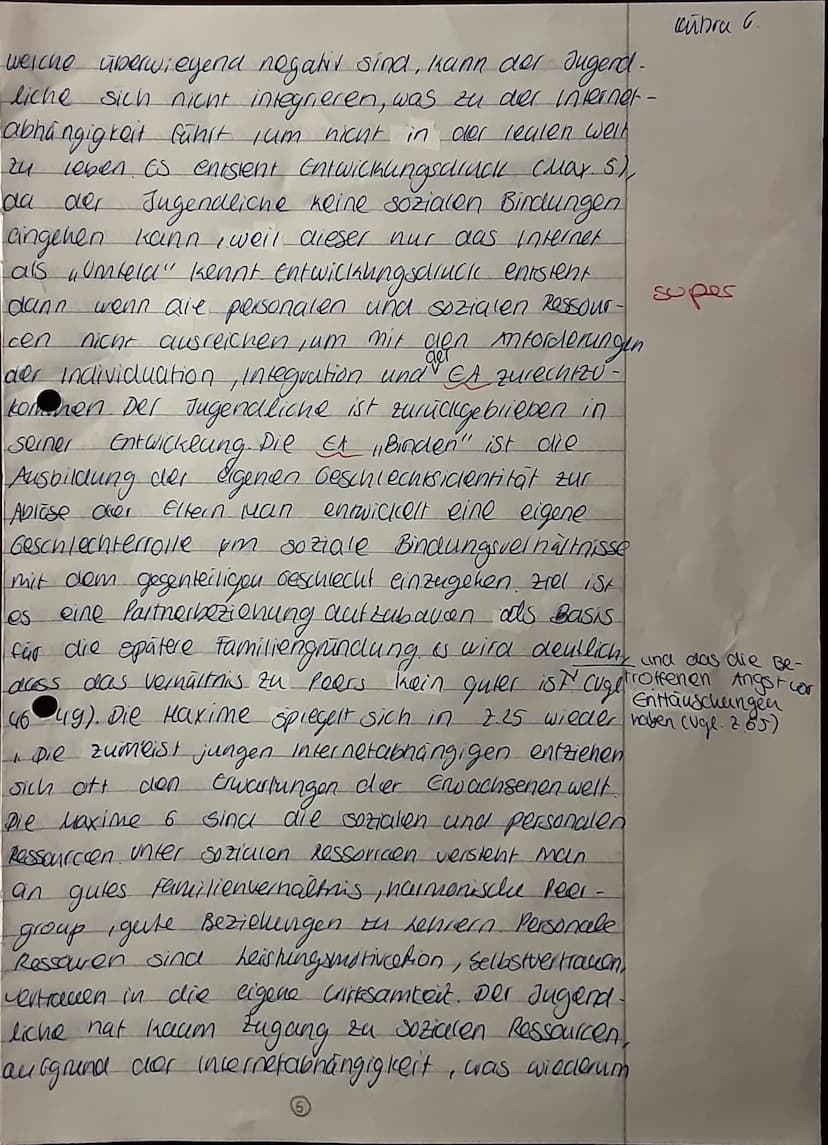 Kübra G.
welche überwiegend negativ sind, kann der Jugend-
liche sich nicht integrieren, was zu der Internet-
abhängigkeit führt, um nicht in der realen Welt
zu leben. Es entsteht Entwicklungsdruck (Max. 5),
da der Jugendliche keine sozialen Bindungen
eingehen kann, weil dieser nur das Internet
als „Umfeld" kennt. Entwicklungsdruck entsteht
dann wenn die personalen und sozialen Ressour-
super
cen nicht ausreichen, um mit den Anforderungen
der Individuation, Integration und der EA zurechtzu-
kommen. Der Jugendliche ist zurückgeblieben in
seiner Entwicklung. Die EA „Binden" ist die
Ausbildung der eigenen Geschlechtsidentität zur
Ablöse der Eltern. Man entwickelt eine eigene
Geschlechterrolle um soziale Bindungsverhältnisse
mit dem gegenteiligen Geschlecht einzugehen. Ziel ist
es eine Partnerbeziehung aufzubauen als Basis
für die spätere Familiengründung. Es wird deutlich,
dass das Verhältnis zu Peers kein guter ist (vgl.
und das die Be-
troffenen Angst vor
Enttäuschungen
haben (vgl. Z 65)
46-49). Die Maxime spiegelt sich in Z.25 wieder
„Die zumeist jungen Internetabhängigen entziehen
sich oft den Erwartungen der Erwachsenenwelt.
Die Maxime 6 sind die sozialen und personalen
Ressourcen. Unter sozialen Ressourcen versteht man
an gutes Familienverhältnis, harmonische Peer-
group, gute Beziehungen zu Lehrern. Personale
Ressouren sind Leistungsmotivation, Selbstvertrauen,
Vertrauen in die eigene Wirksamkeit. Der Jugend-
liche hat kaum Zugang zu sozialen Ressourcen,
aufgrund der Internetabhängigkeit, was wiederum
5